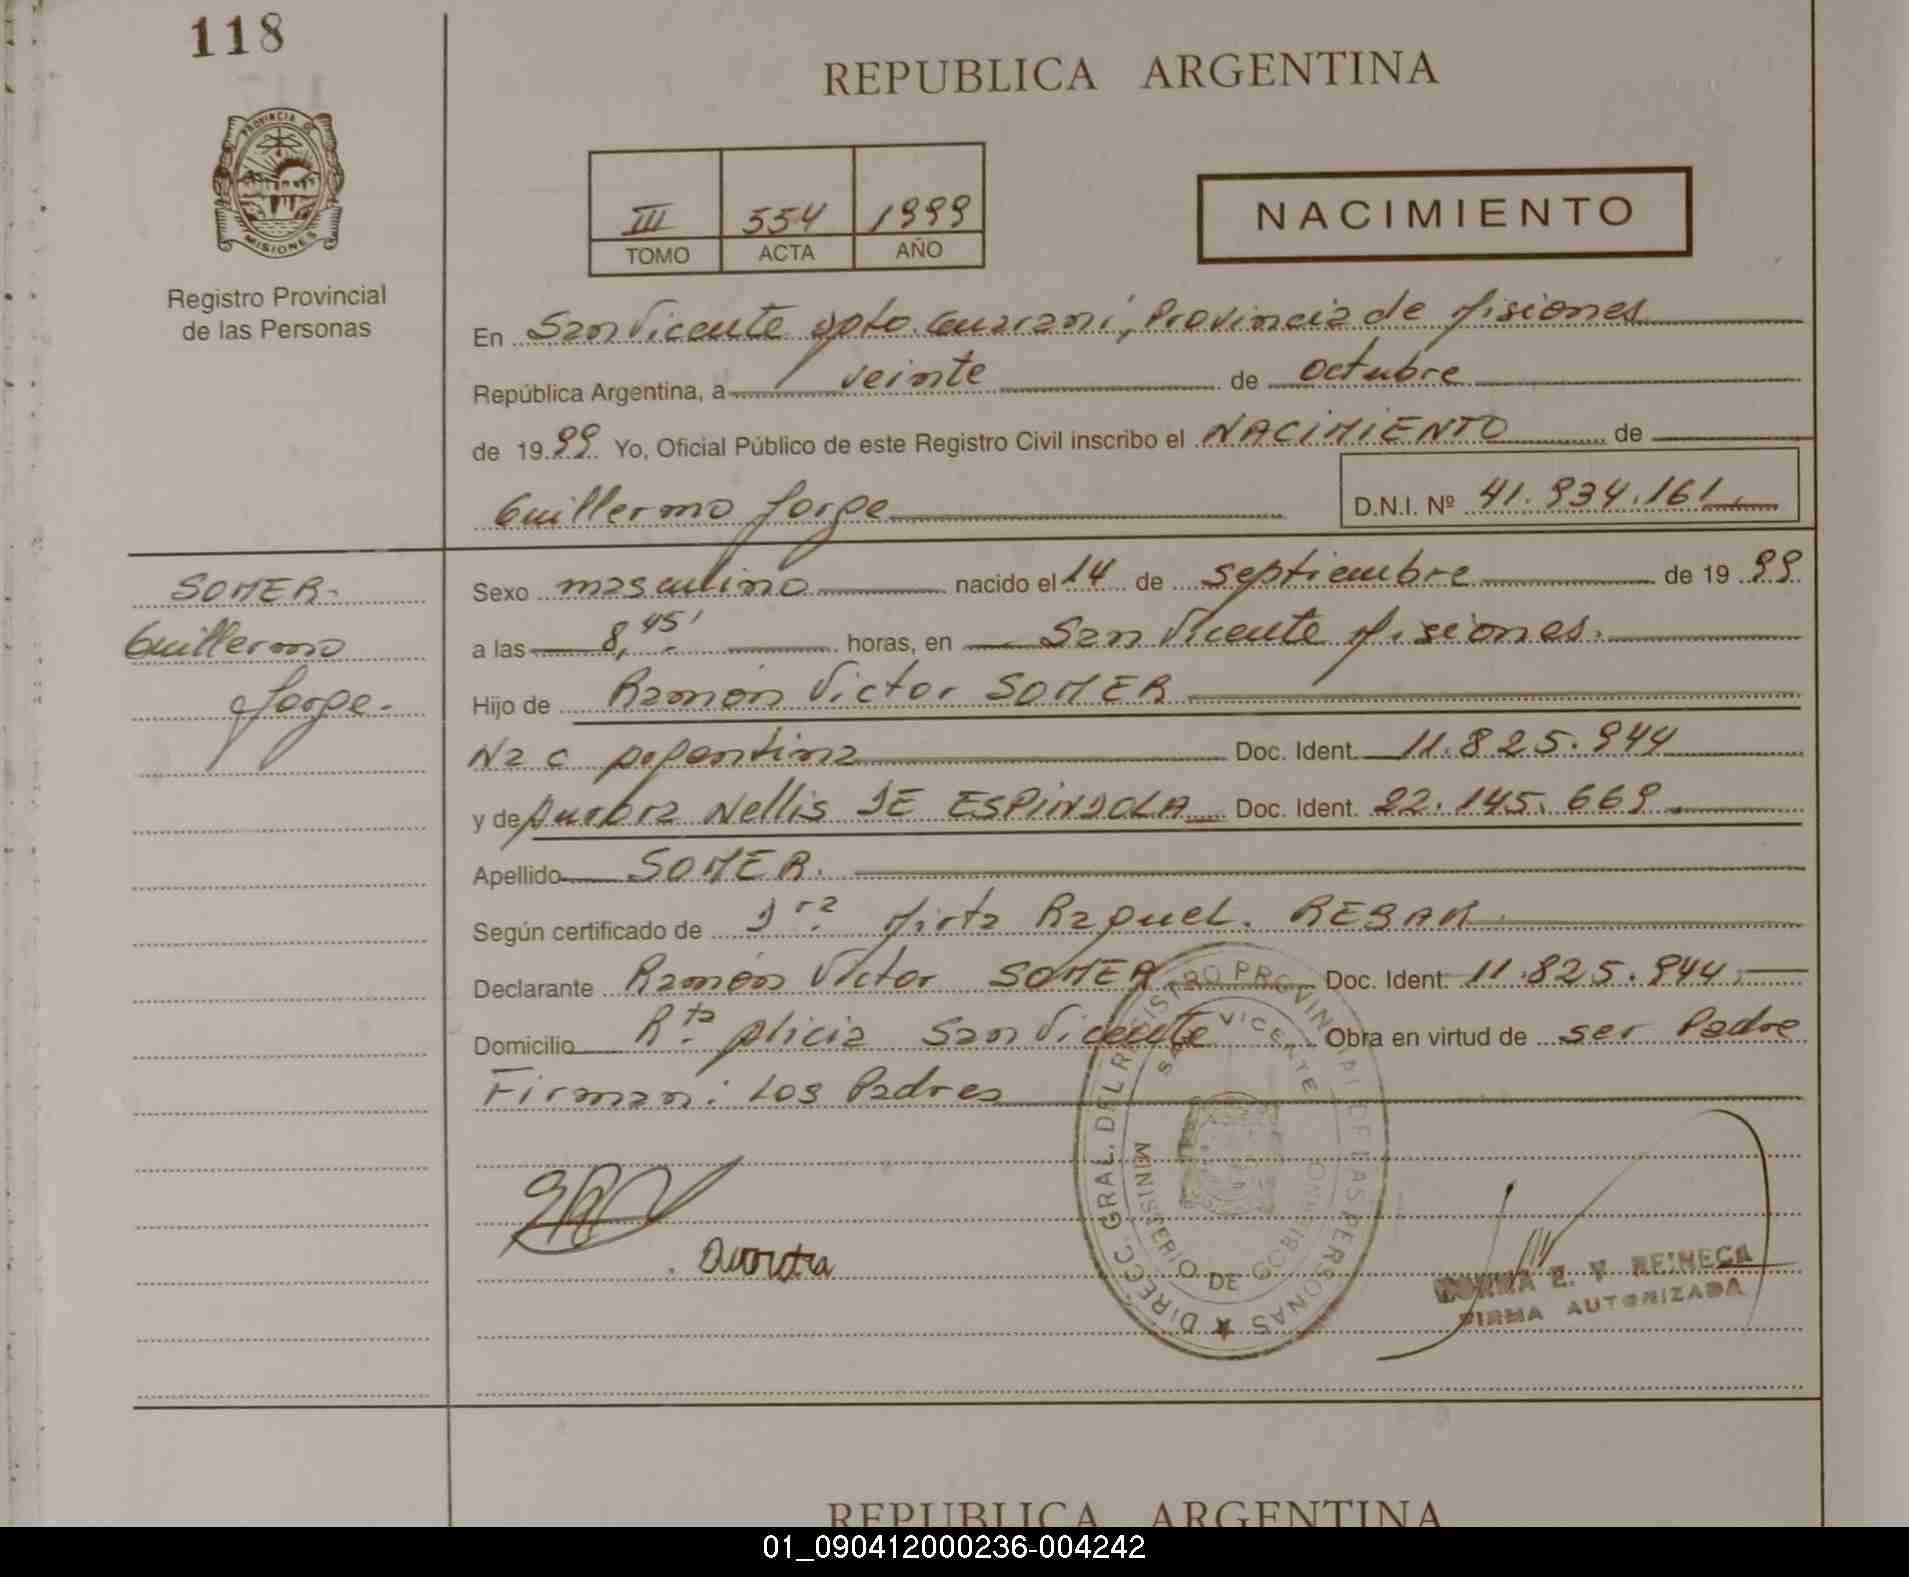 118
REPUBLICA ARGENTINA
PROVINCIA DE
MISIONES
Registro Provincial
de las Personas
III 554 1999
TOMO ACTA AÑO
NACIMIENTO
En San Vicente Dpto. Guaraní, Provincia de Misiones
República Argentina, a veinte de octubre
de 1999 Yo, Oficial Público de este Registro Civil inscribo el NACIMIENTO de
Guillermo Jorge D.N.I. Nº 41.934.161.
SOMER.
Guillermo
Jorge.
Sexo masculino nacido el 14 de septiembre de 1999
a las 8,45' horas, en San Vicente Misiones.
Hijo de Ramón Victor SOMER
Nac Argentina Doc. Ident. 11.825.944
y de Aurora Nellis DE ESPINDOLA Doc. Ident. 22.145.669.
Apellido SOMER.
Según certificado de Dra. Mirta Raquel.
Declarante Ramón Victor SOMER Doc. Ident. 11.825.944.
Domicilio Rta. Alicia San Vicente Obra en virtud de ser Padre
Firman: Los Padres
DIRECC. GRAL. DEL REGISTRO PROVINCIAL DE LAS PERSONAS
SAN VICENTE
MINISTERIO DE GOBIERNO
NORMA E. V. REINECA
FIRMA AUTORIZADA
REPUBLICA ARGENTINA
01_090412000236-004242